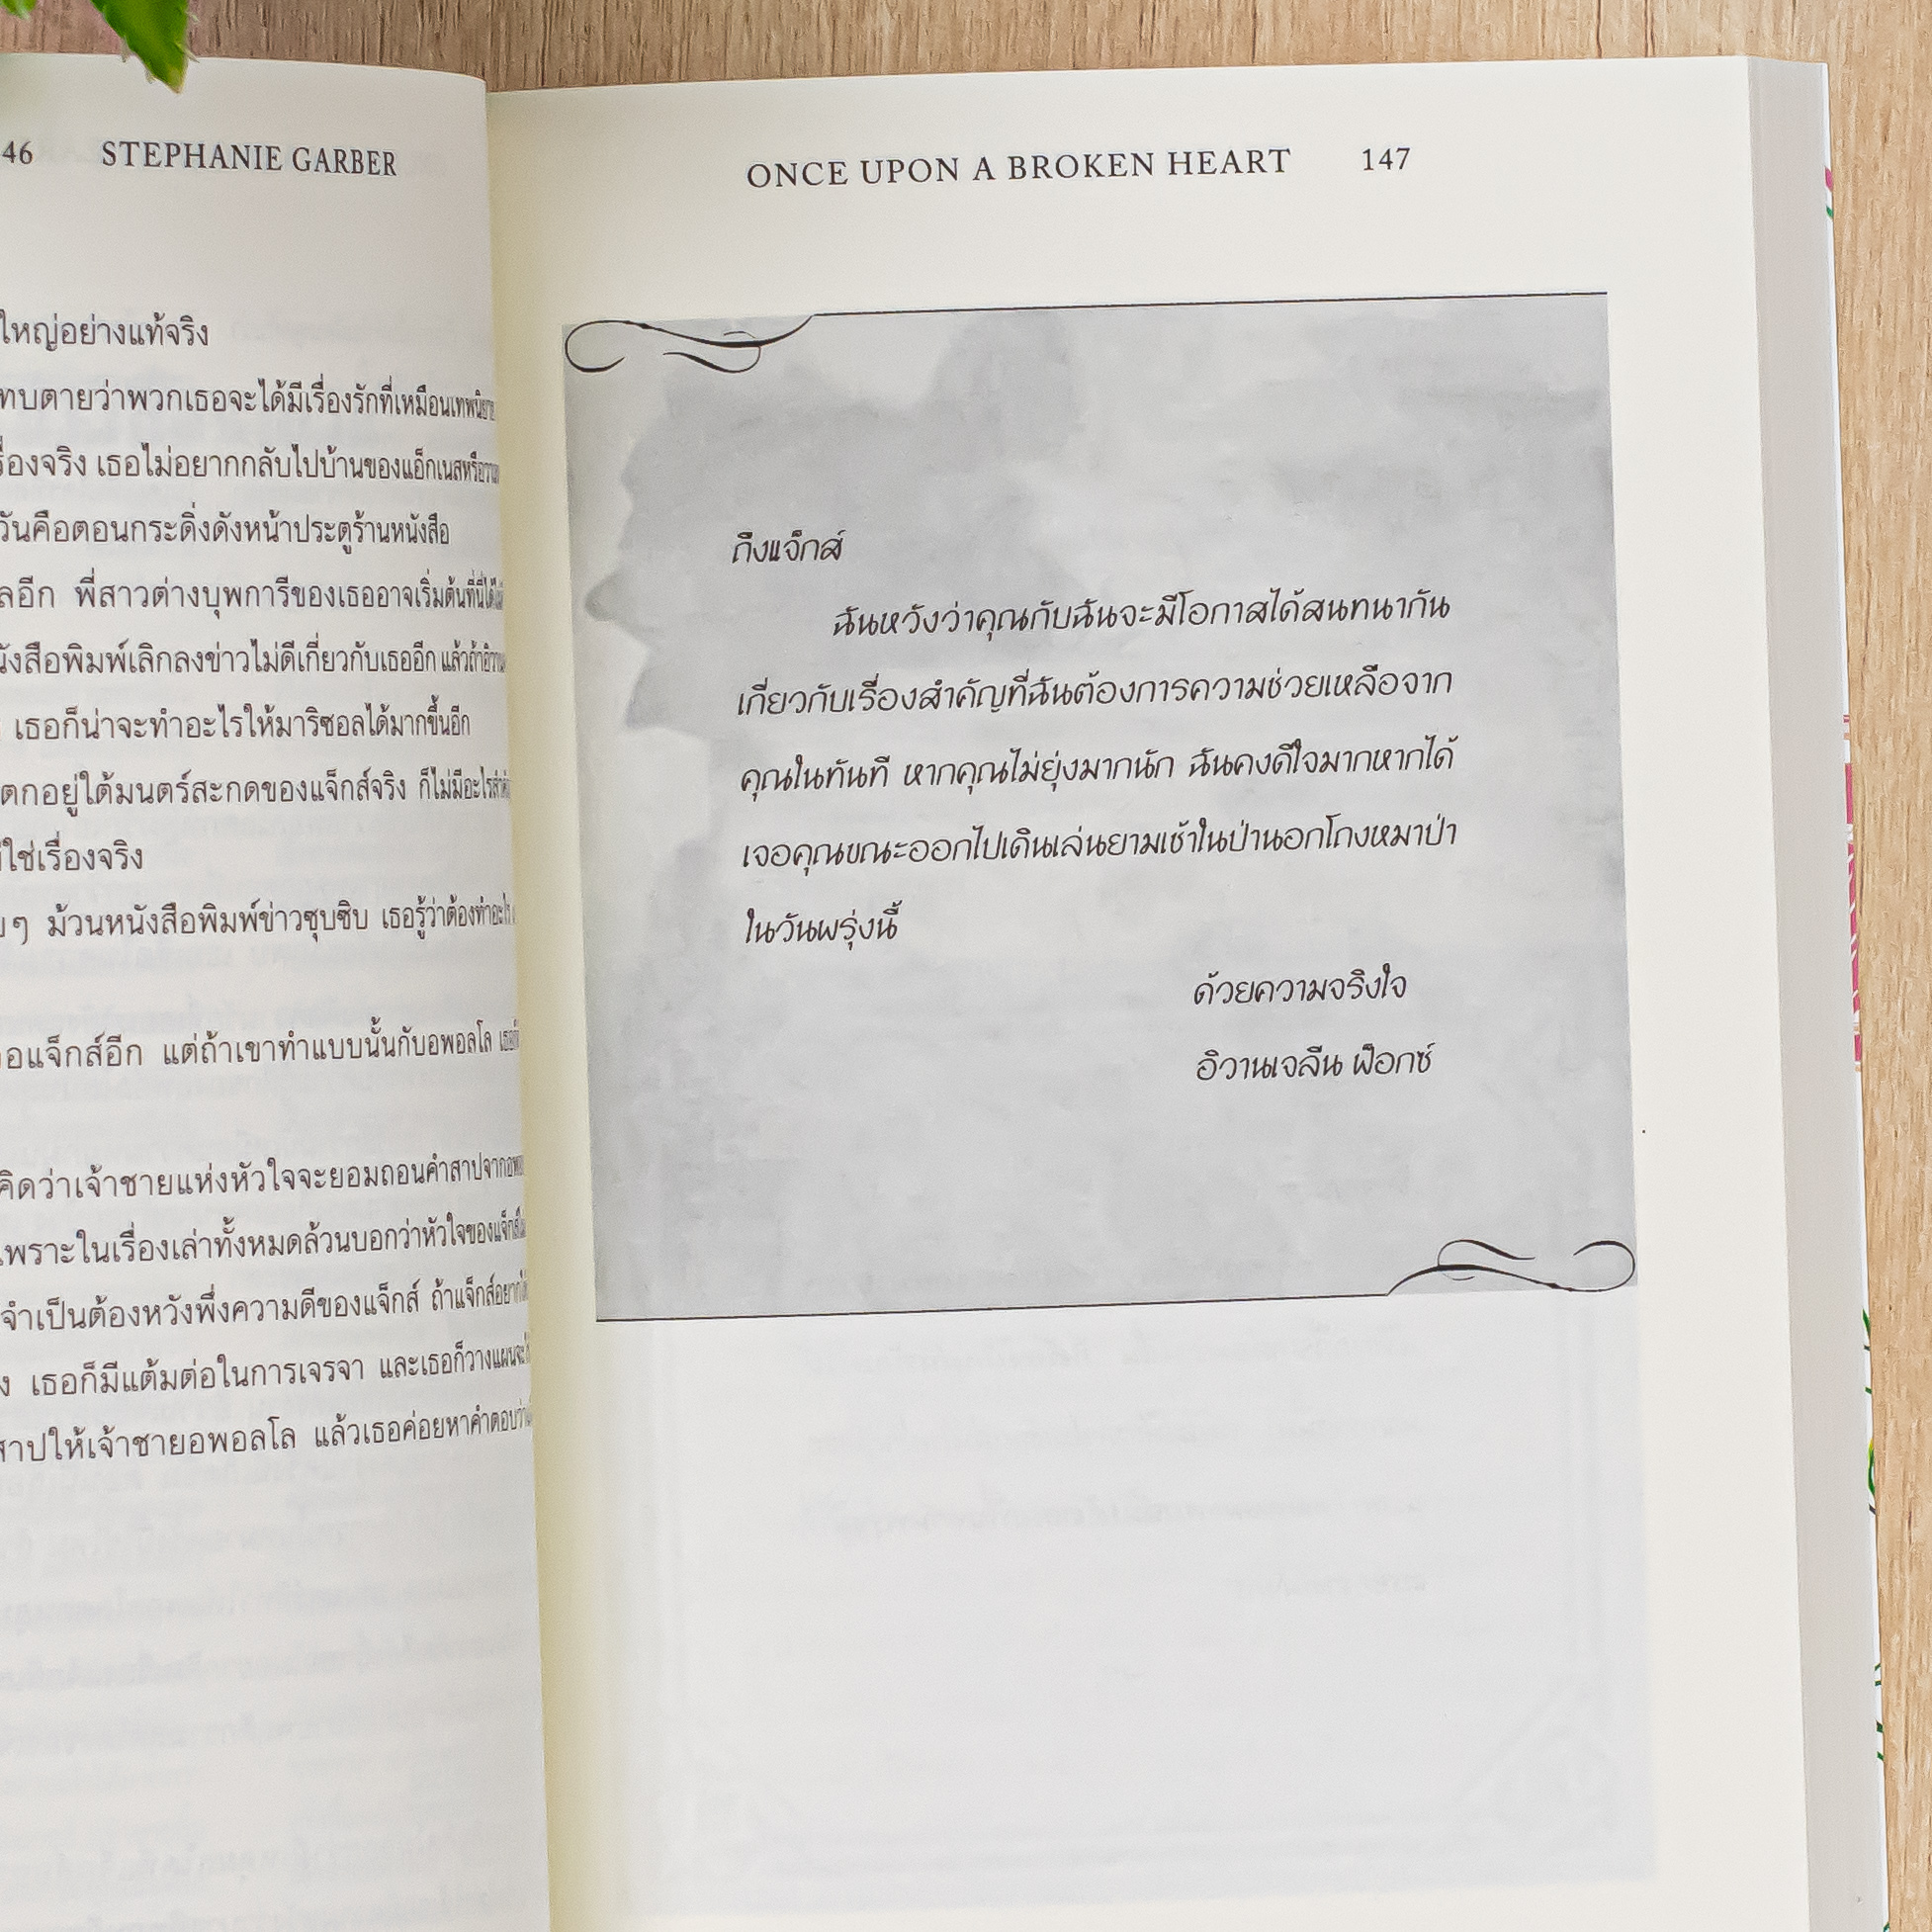 46 STEPHANIE GARBER
ใหญ่อย่างแท้จริง
ทบตายว่าพวกเธอจะได้มีเรื่องรักที่เหมือนเทพนิยาย
รื่องจริง เธอไม่อยากกลับไปบ้านของแอ็กเนสหรือ
วันคือตอนกระดิ่งดังหน้าประตูร้านหนังสือ
ลอีก พี่สาวต่างบุพการีของเธออาจเริ่มต้นที่นี่ได้
นังสือพิมพ์เลิกลงข่าวไม่ดีเกี่ยวกับเธออีก แล้วถ้า
เธอก็น่าจะทำอะไรให้มาริซอลได้มากขึ้นอีก
ตกอยู่ใต้มนตร์สะกดของแจ็กส์จริง ก็ไม่มีอะไร
ใช่เรื่องจริง
ๆ ม้วนหนังสือพิมพ์ข่าวซุบซิบ เธอรู้ว่าต้องทำอะไร
อแจ็กส์อีก แต่ถ้าเขาทำแบบนั้นกับอพอลโล
คิดว่าเจ้าชายแห่งหัวใจจะยอมถอนคำสาปจาก
เพราะในเรื่องเล่าทั้งหมดล้วนบอกว่าหัวใจของแจ็กส์
จำเป็นต้องหวังพึ่งความดีของแจ็กส์ ถ้าแจ็กส์อยาก
ง เธอก็มีแต้มต่อในการเจรจา และเธอก็วางแผนจะ
สาปให้เจ้าชายอพอลโล แล้วเธอค่อยหาคำตอบ
ONCE UPON A BROKEN HEART 147
ถึงแจ็กส์
ฉันหวังว่าคุณกับฉันจะมีโอกาสได้สนทนากัน
เกี่ยวกับเรื่องสำคัญที่ฉันต้องการความช่วยเหลือจาก
คุณในทันที หากคุณไม่ยุ่งมากนัก ฉันคงดีใจมากหากได้
เจอคุณขณะออกไปเดินเล่นยามเช้าในป่านอกโถงหมาป่า
ในวันพรุ่งนี้
ด้วยความจริงใจ
อิวานเจลีน ฟ็อกซ์